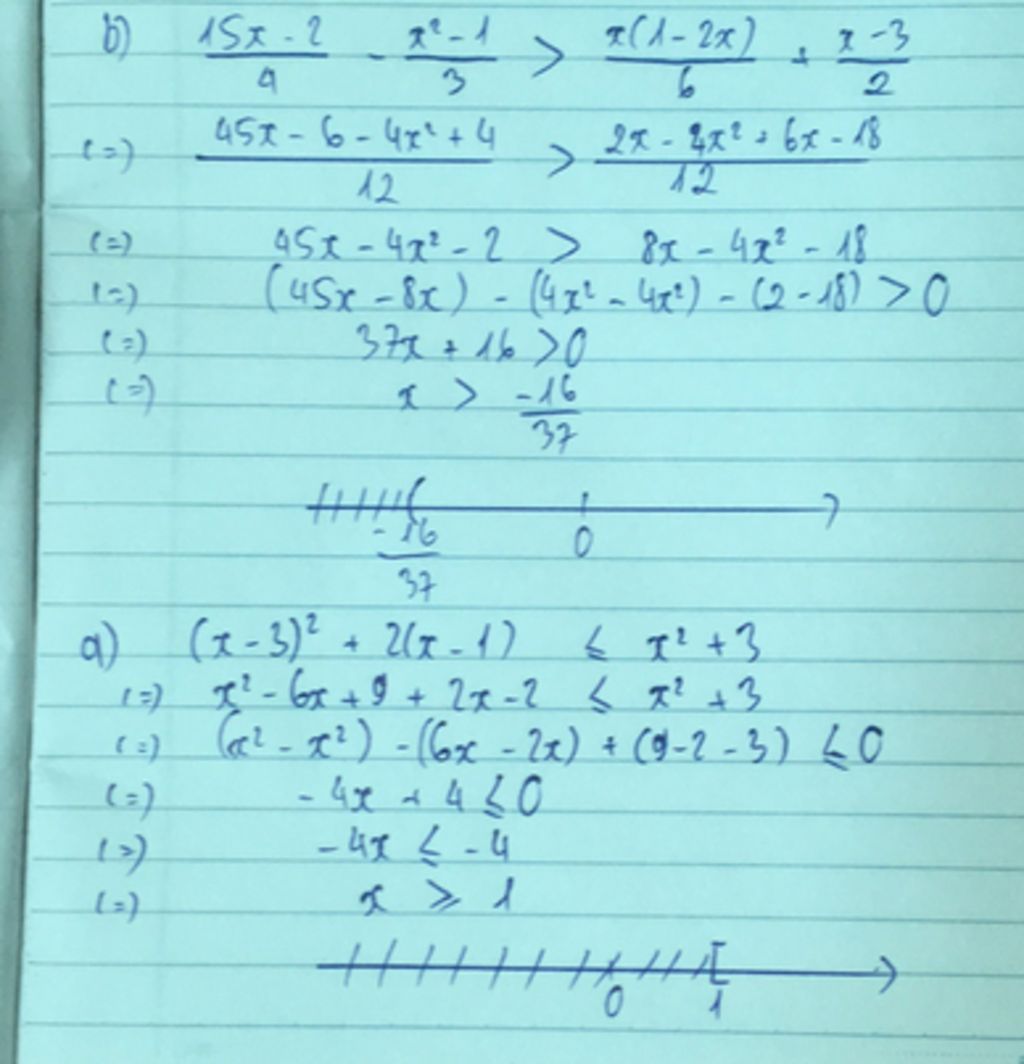 b) (15x - 2)/4 - (x² - 1)/3 > x(1 - 2x)/6 + (x - 3)/2
(=) (45x - 6 - 4x² + 4)/12 > (2x - 4x² + 6x - 18)/12
(=) 45x - 4x² - 2 > 8x - 4x² - 18
(=) (45x - 8x) - (4x² - 4x²) - (2 - 18) > 0
(=) 37x + 16 > 0
(=) x > -16/37
-16/37 0
a) (x - 3)² + 2(x - 1) ≤ x² + 3
(=) x² - 6x + 9 + 2x - 2 ≤ x² + 3
(=) (x² - x²) - (6x - 2x) + (9 - 2 - 3) ≤ 0
(=) - 4x + 4 ≤ 0
(=) - 4x ≤ - 4
(=) x ≥ 1
0 1